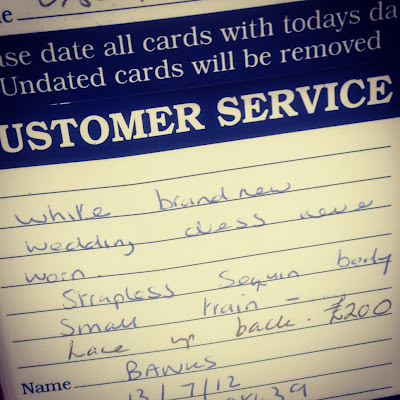 ase date all cards with todays da
Undated cards will be removed
USTOMER SERVICE
white brand new
wedding dress never
worn.
Strapless Sequin body
Small train -
Lace up back. £200
Name BANKS
13/7/12
39